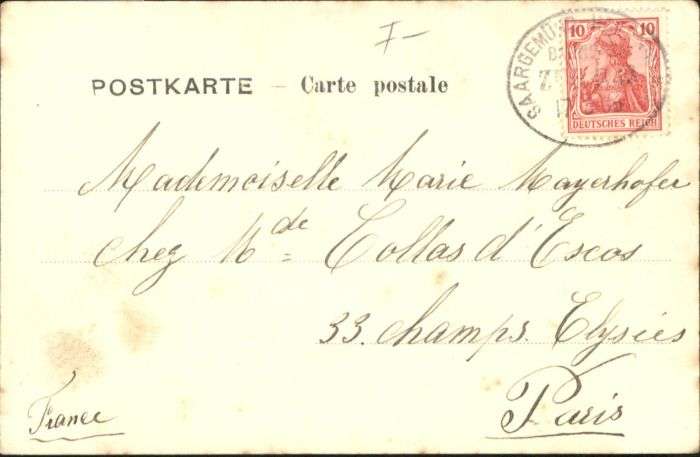 7-
POSTKARTE - Carte postale
10 10
DEUTSCHES REICH
SAARGEMÜ
17
Mademoiselle Marie Mayerhofer
chez Mde Collas d'Escos
33. champs. Elysées
Paris
France